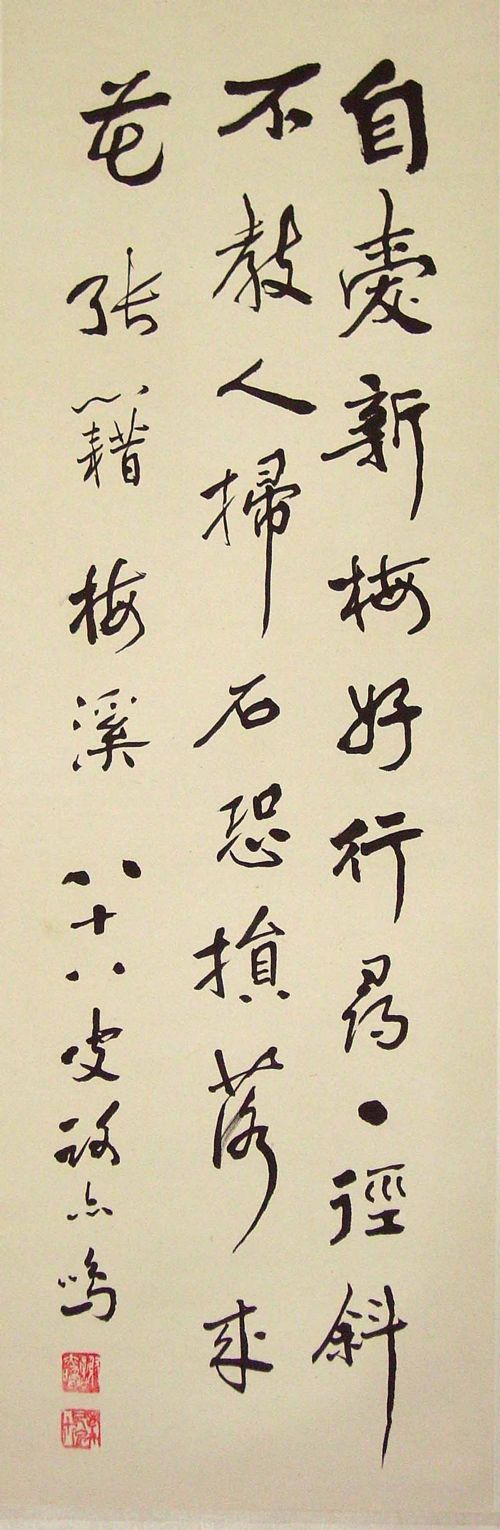 自愛新梅好行尋一徑斜
不教人掃石恐損落來
花 張籍 梅溪 八十八叟 亦鳴